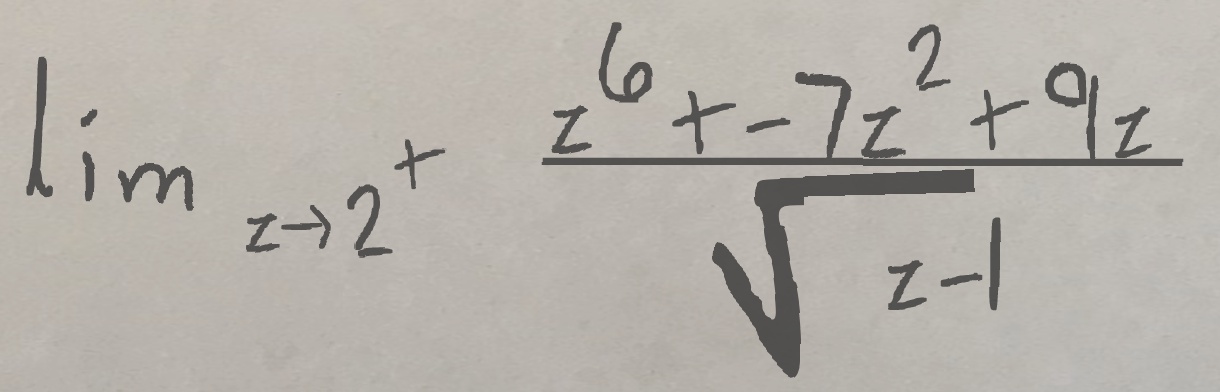 \lim_{z \to 2^+} \frac{z^6 + -7z^2 + 9z}{\sqrt{z-1}}